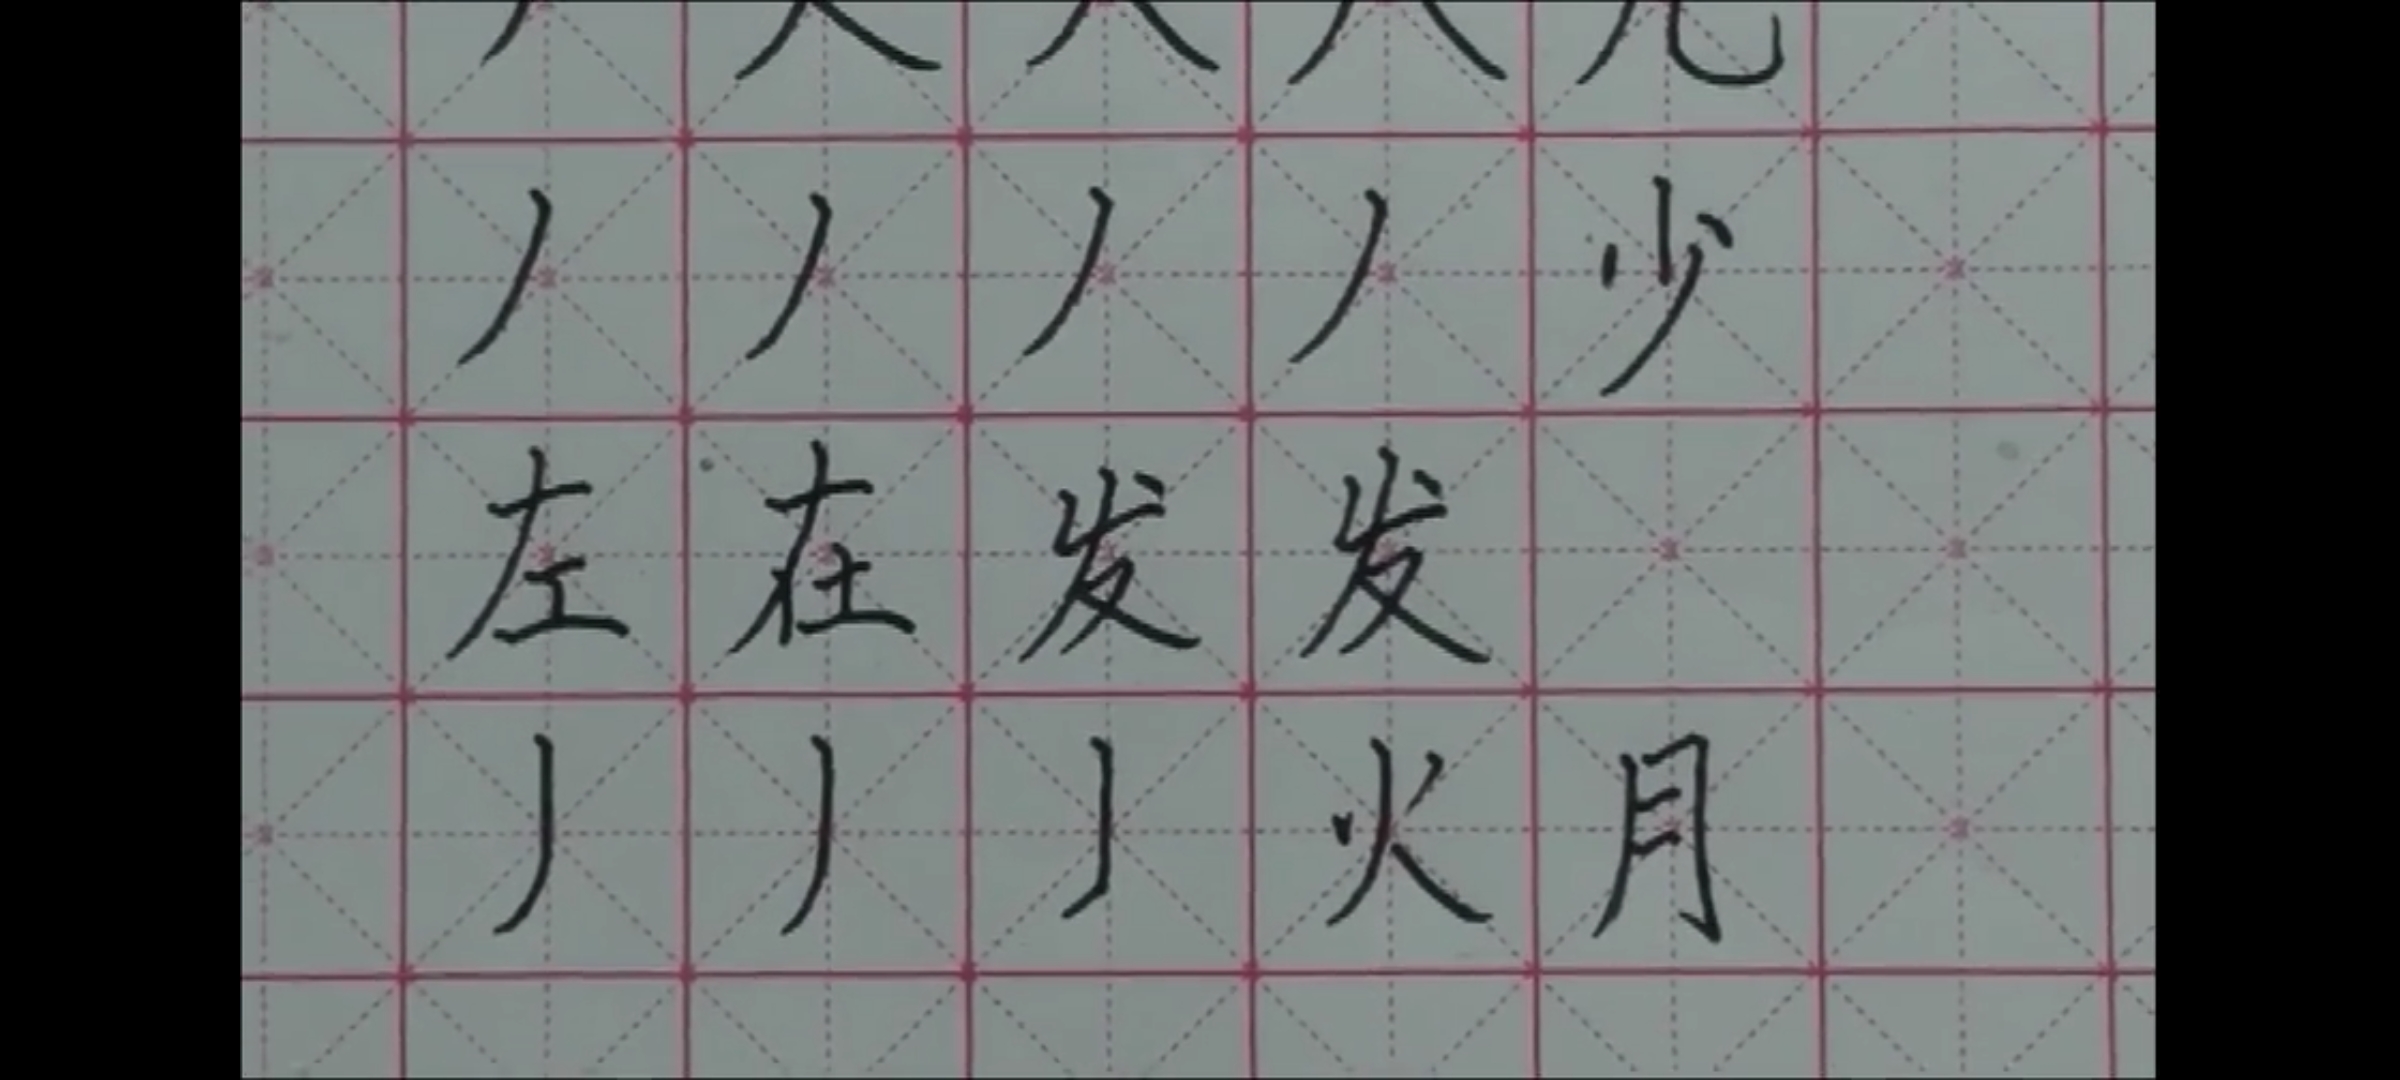 丿 丿 丿 丿 少
左 在 发 发
丿 丿 丿 火 月